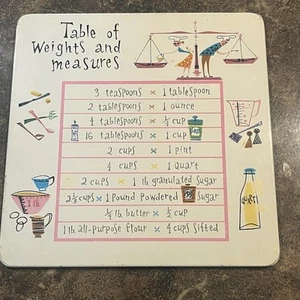 Table of
Weights and
measures
3 teaspoons × 1 tablespoon
2 tablespoons × 1 ounce
4 tablespoons × ¼ cup
16 tablespoons × 1 cup
2 cups × 1 pint
4 cups × 1 quart
2 cups × 1 lb granulated sugar
2½ cups × 1 pound powdered sugar
¼ lb butter × ½ cup
1 lb all-purpose flour × 4 cups sifted
1 lb